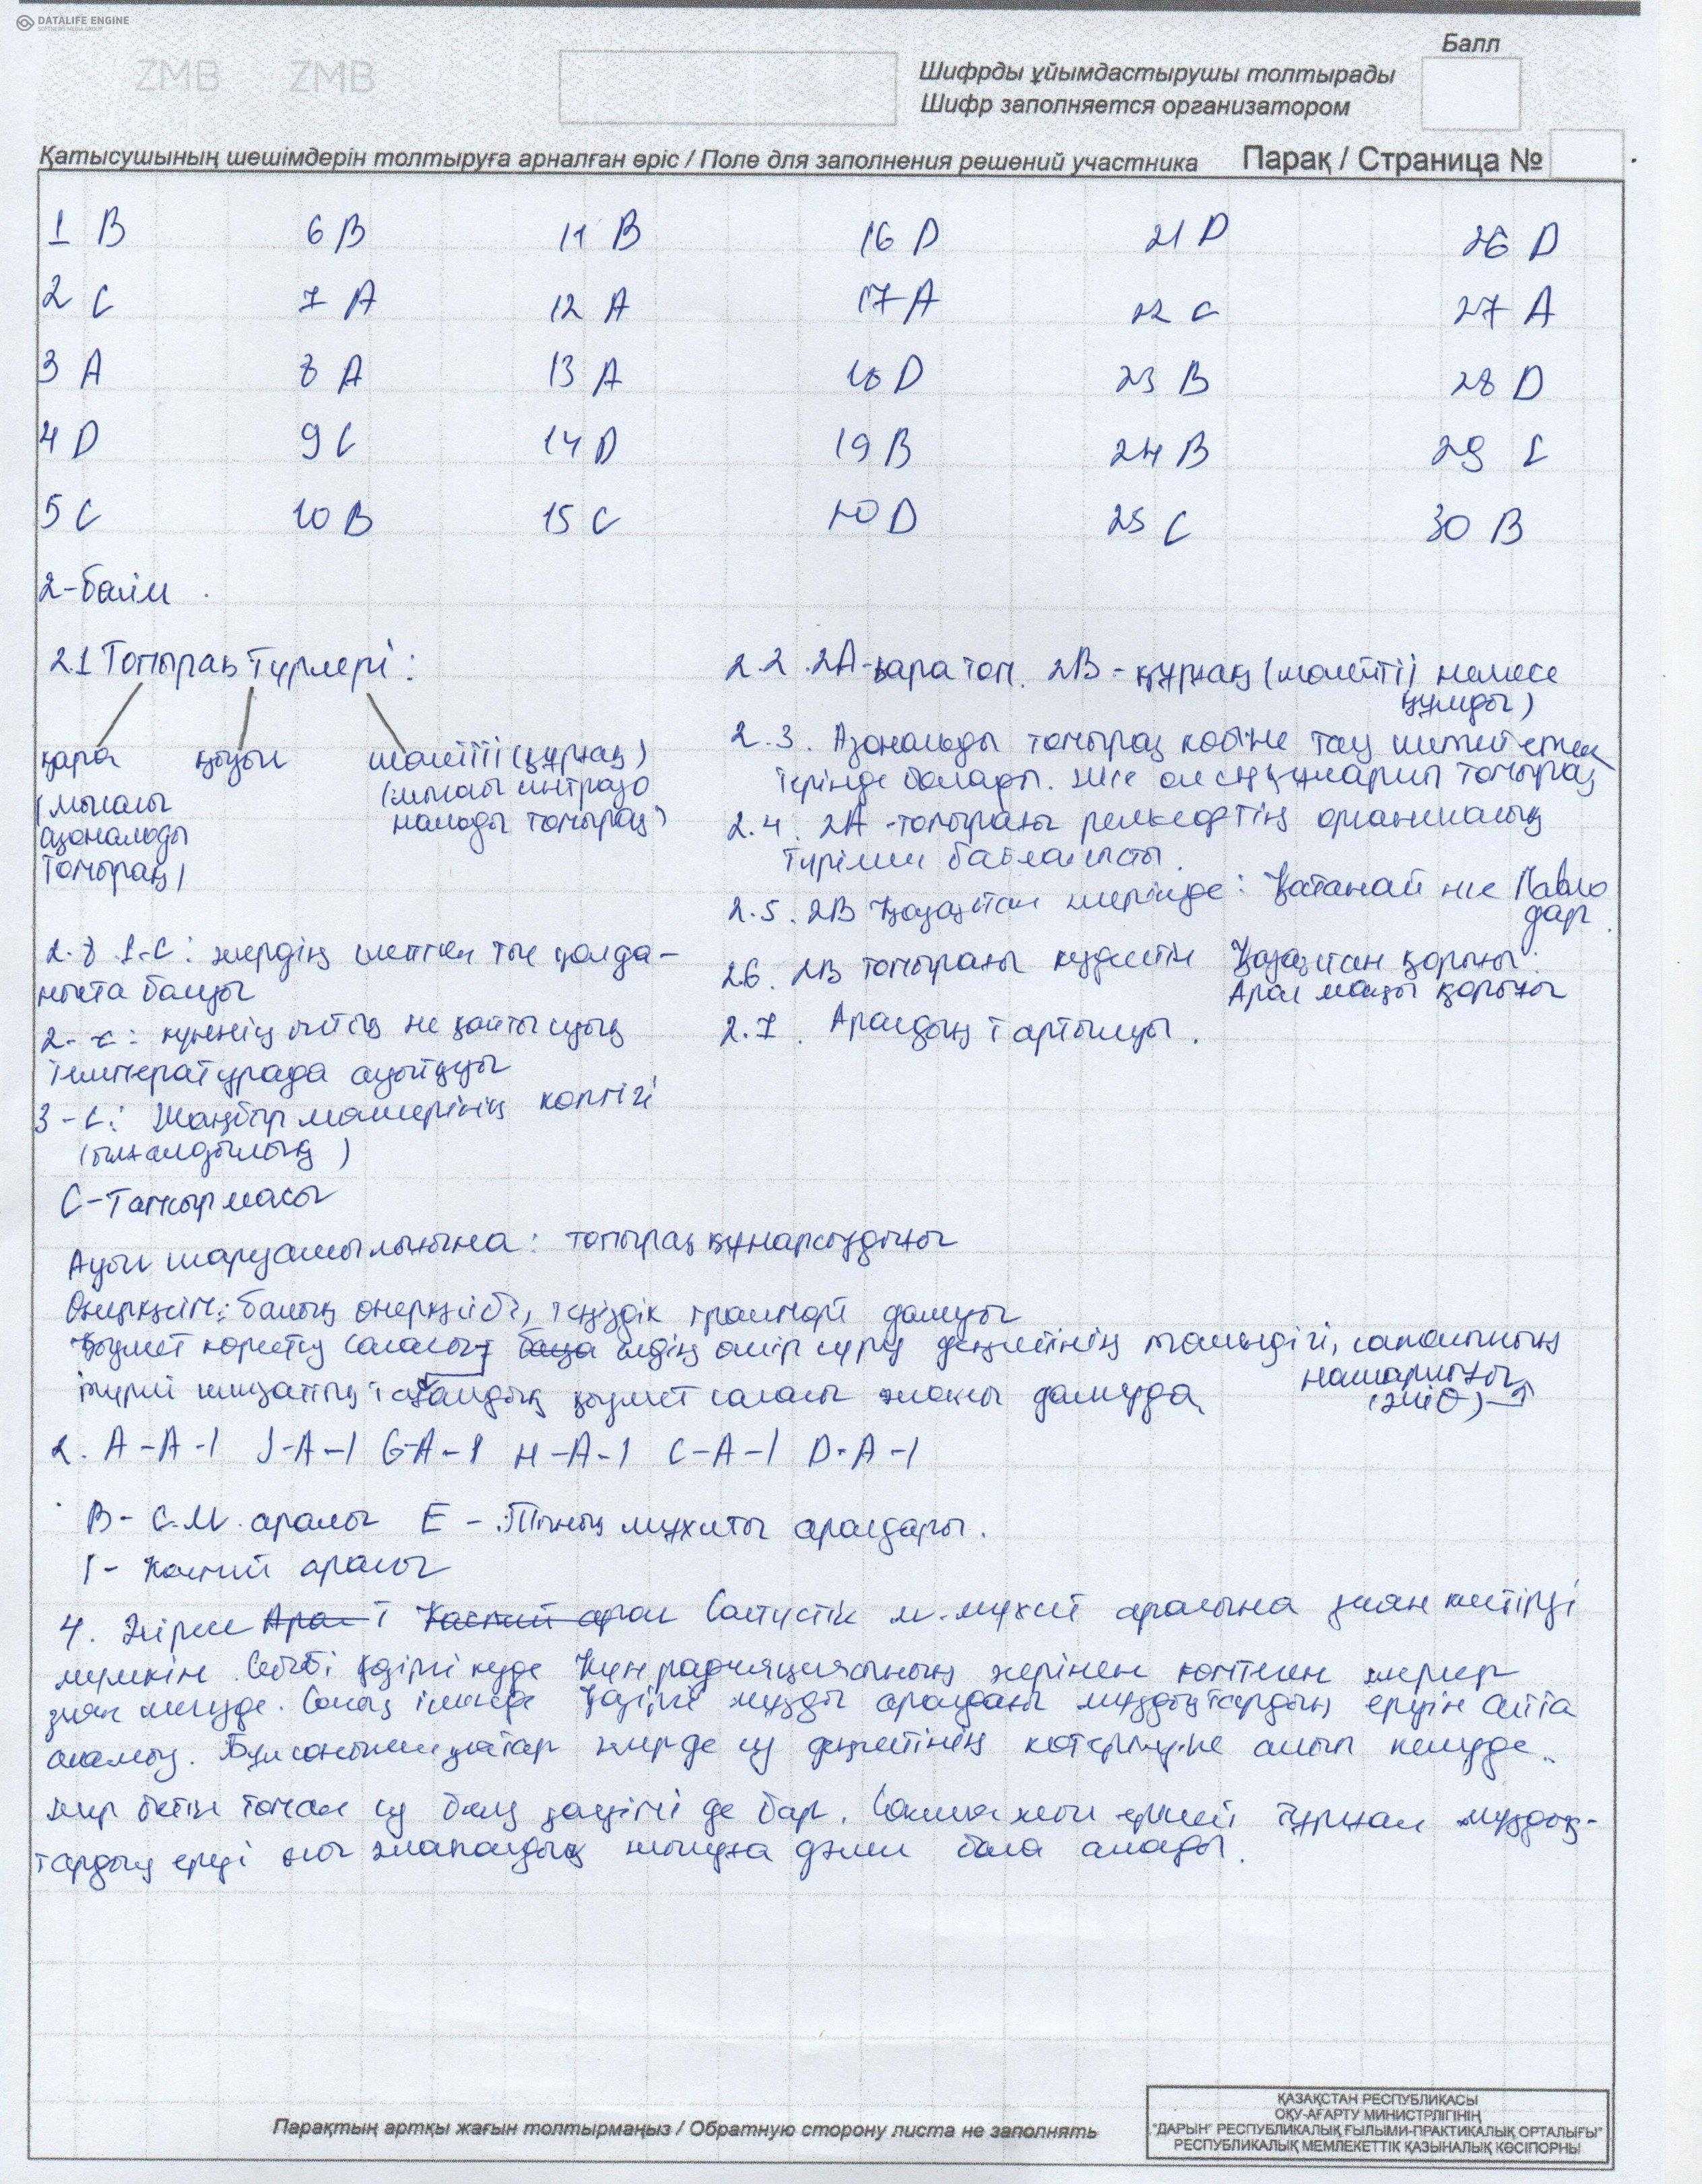 DATALIFE ENGINE
SOFTNEWS MEDIA GROUP
ZMB ZMB
Балл
Шифрды ұйымдастырушы толтырады
Шифр заполняется организатором
Қатысушының шешімдерін толтыруға арналған өріс / Поле для заполнения решений участника Парақ / Страница №
1 B 6 B 11 B 16 D 21 D 26 D
2 C 7 A 12 A 17 A 22 C 27 A
3 A 8 A 13 A 18 D 23 B 28 D
4 D 9 C 14 D 19 B 24 B 29 C
5 C 10 B 15 C 20 D 25 C 30 B
2-бөлім
2.1 Топырақ түрлері:
қара қызыл шөлейтті (құрғақ)
(мысалы (мысалы интразо
азональды нальды топырақ)
топырақ)
2.2. 2A-қара топ. 2B - құрғақ (шөлейтті) немесе
құмды)
2.3. Азональды топырақ көбіне тау
терінде болады. топырақ
2.4. 2A-топырағы рельефтің органикалық
түрімен байланысты.
2.5. 2B Қазақстан жерінде: Қостанай және Павло
дар.
2.6. 2B топырағы кездесетін Қазақстан қорығы:
Арал маңы қорығы
2.7. Аралдың тартылуы.
2.8 1-С: жердің шектен тыс қолда-
ныста болуы
2-с: күннің ыстық не қатты суық
температурада ауытқуы
3-С: Жаңбыр мөлшерінің көптігі
(ылғалдылық)
С-Тамыр масы
Ауыл шаруашылығына: топырақ құнарсыздығы
Өнеркәсіп: балық өнеркәсібі, теңіздік транспорт дамуы
Қызмет көрсету саласы: елдің өмір сүру деңгейінің төмендігі, сапасының
нашарлығы
қызмет саласы жақсы дамуда (ЖІӨ)-1
2. A-A-1 J-A-1 G-A-1 H-A-1 C-A-1 D-A-1
B- С.М. аралы E - Тынық мұхиты аралдары.
I- Каспий аралы
4. Жерге Солтүстік м. мұхит аралына зиян келтіруі
мүмкін. Себебі қазіргі күнде Күн радиациясының әсерінен көптеген жерлер
зиян шегуде. Соның ішінде қазіргі мұзды аралдағы мұздықтардың еруін айта
аламыз. Бұл сонымен қатар жерде су деңгейінің көтерілуіне алып келуде.
Жер бетін топан су басу қаупі де бар. мұздық-
тардың еруі осы жағдайдың шығуға дәлел бола алады.
Парақтың артқы жағын толтырмаңыз / Обратную сторону листа не заполнять
ҚАЗАҚСТАН РЕСПУБЛИКАСЫ
ОҚУ-АҒАРТУ МИНИСТРЛІГІНІҢ
"ДАРЫН" РЕСПУБЛИКАЛЫҚ ҒЫЛЫМИ-ПРАКТИКАЛЫҚ ОРТАЛЫҒЫ"
РЕСПУБЛИКАЛЫҚ МЕМЛЕКЕТТІК ҚАЗЫНАЛЫҚ КӘСІПОРНЫ